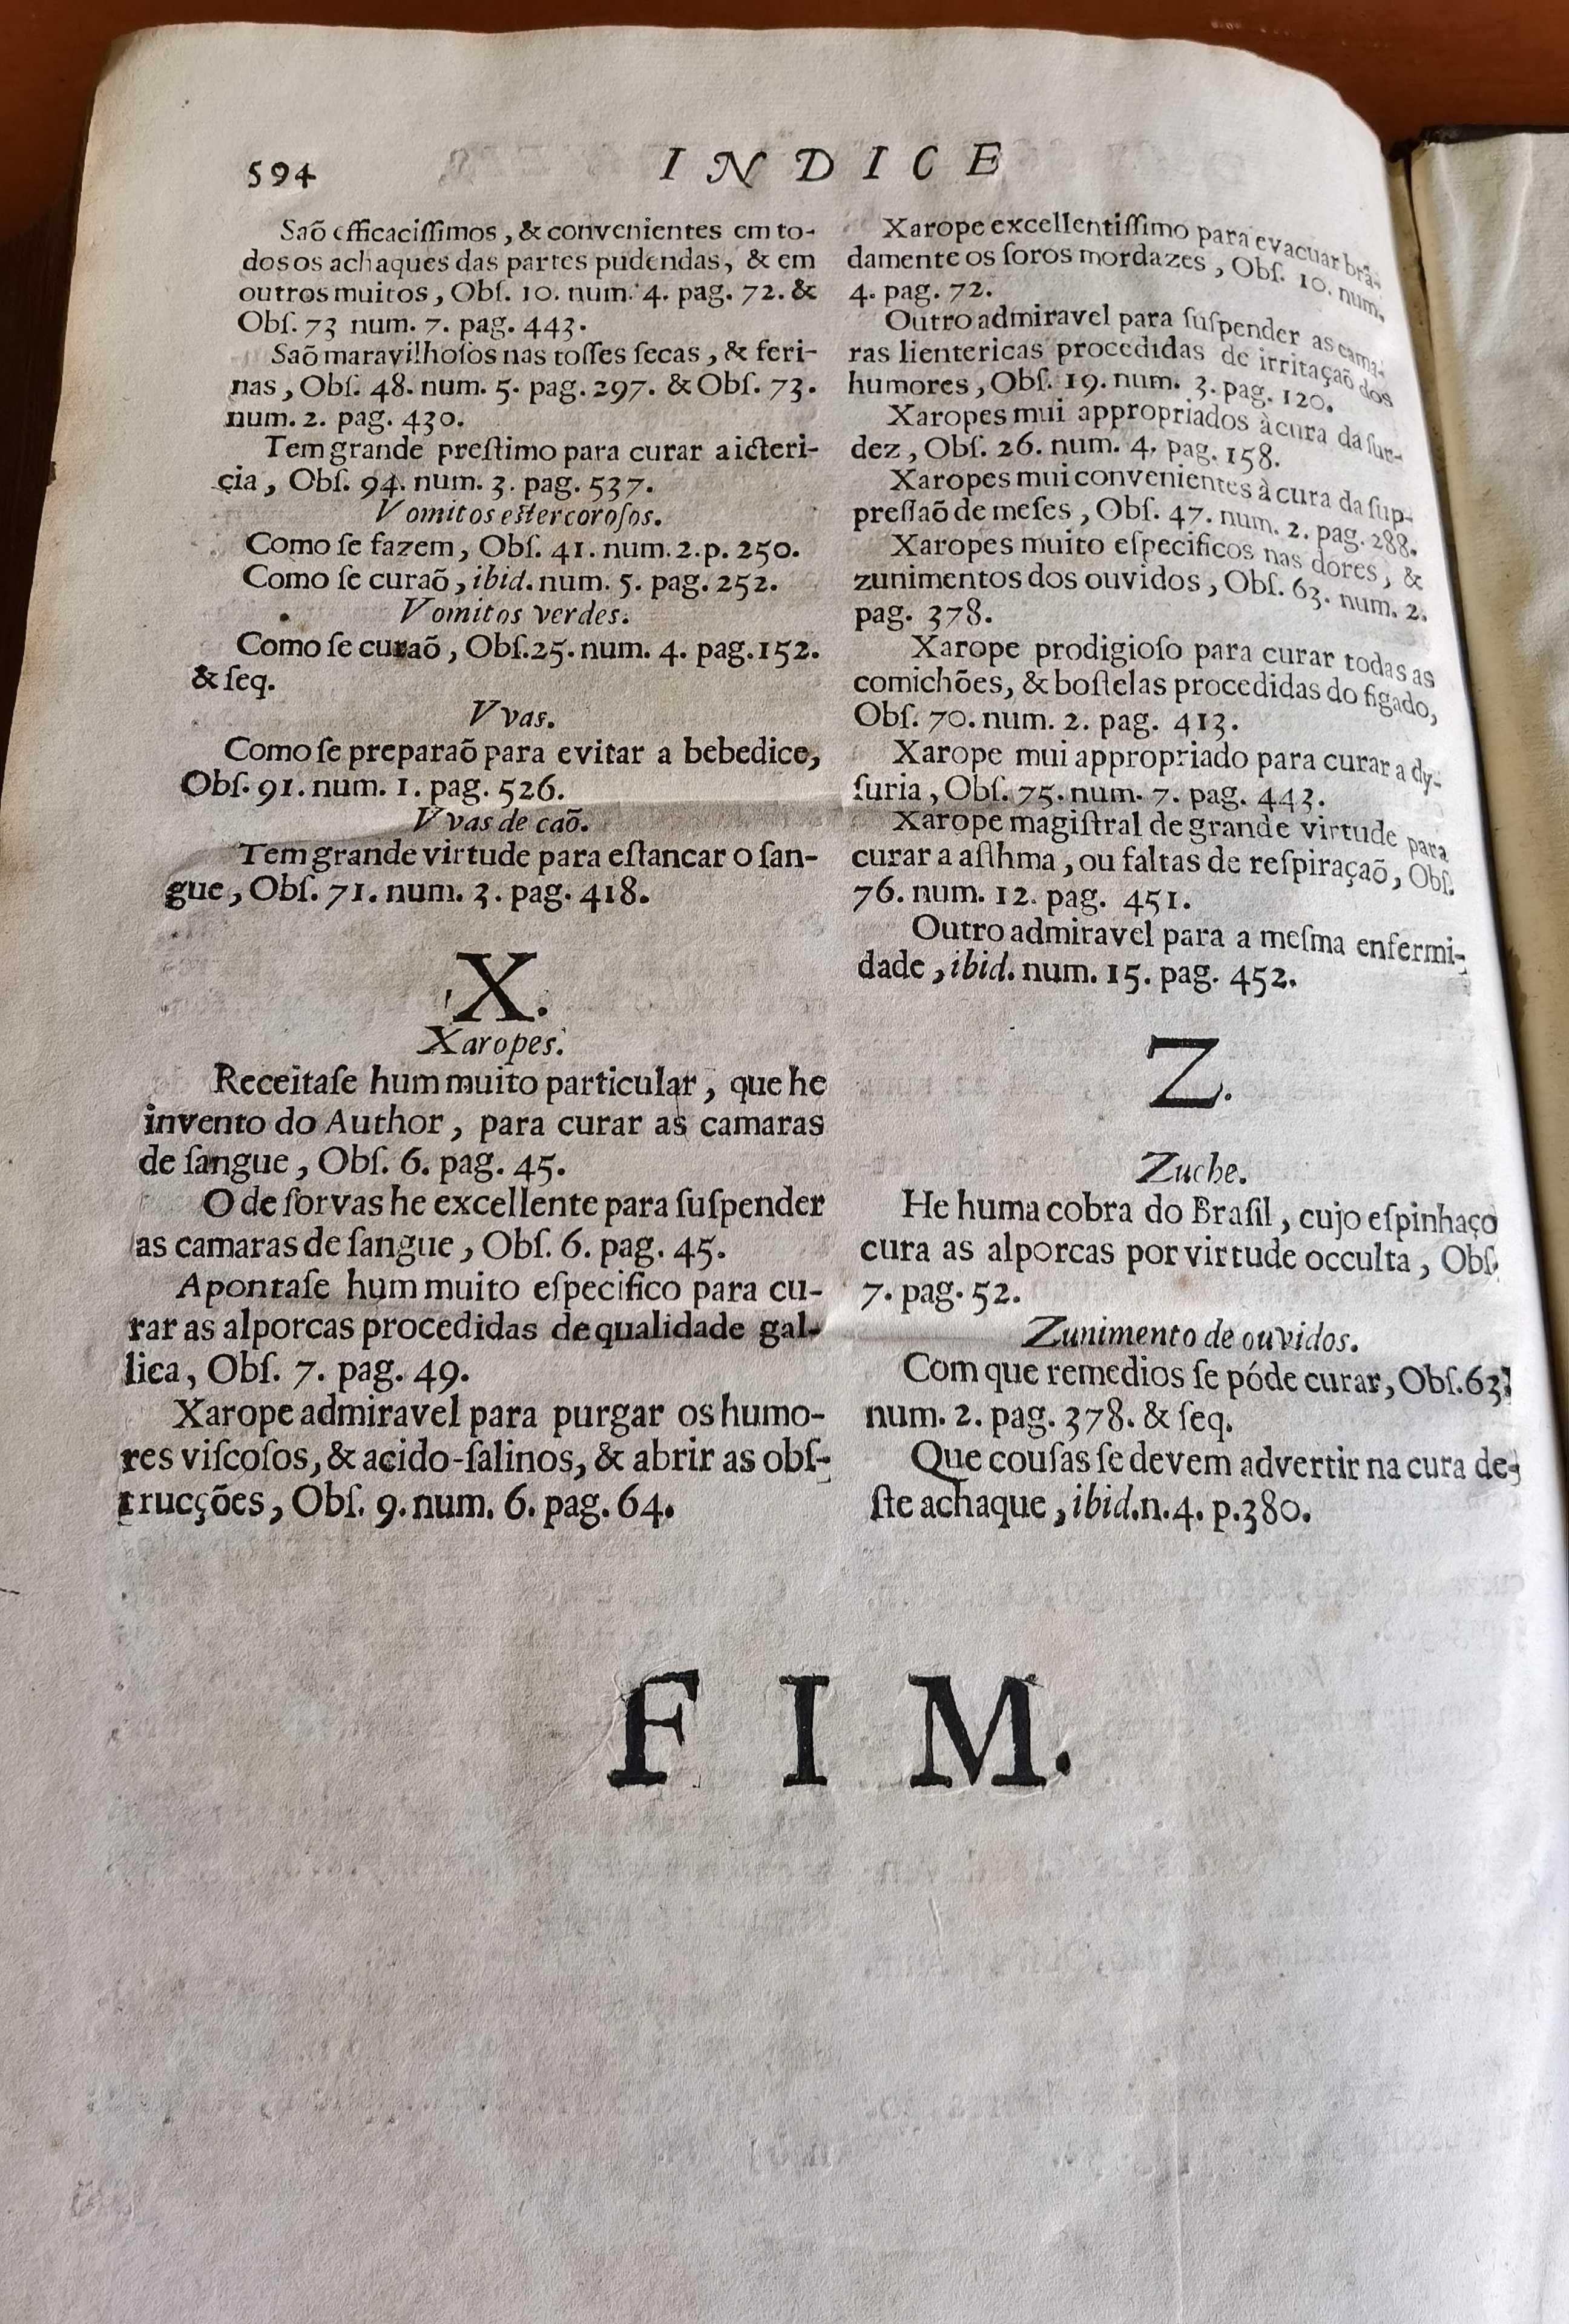 594
INDICE
Saõ efficaciſſimos, & convenientes em to-
dos os achaques das partes pudendas, & em
outros muitos, Obſ. 10. num. 4. pag. 72. &
Obſ. 73 num. 7. pag. 443.
Saõ maravilhoſos nas toſſes ſecas, & feri-
nas, Obſ. 48. num. 5. pag. 297. & Obſ. 73.
num. 2. pag. 430.
Tem grande preſtimo para curar a icteri-
cia, Obſ. 94. num. 3. pag. 537.
Vomitos eſtercoroſos.
Como ſe fazem, Obſ. 41. num. 2. p. 250.
Como ſe curaõ, ibid. num. 5. pag. 252.
Vomitos verdes.
Como ſe curaõ, Obſ. 25. num. 4. pag. 152.
& ſeq.
Vvas.
Como ſe preparaõ para evitar a bebedice,
Obſ. 91. num. 1. pag. 526.
Vvas de caõ.
Tem grande virtude para eſtancar o ſan-
gue, Obſ. 71. num. 3. pag. 418.
X.
Xaropes.
Receitaſe hum muito particular, que he
invento do Author, para curar as camaras
de ſangue, Obſ. 6. pag. 45.
O de ſorvas he excellente para ſuſpender
as camaras de ſangue, Obſ. 6. pag. 45.
Apontaſe hum muito eſpecifico para cu-
rar as alporcas procedidas de qualidade gal-
lica, Obſ. 7. pag. 49.
Xarope admiravel para purgar os humo-
res viſcoſos, & acido-ſalinos, & abrir as obſ-
trucções, Obſ. 9. num. 6. pag. 64.
Xarope excellentiſſimo para evacuar brã-
damente os ſoros mordazes, Obſ. 10. num.
4. pag. 72.
Outro admiravel para ſuſpender as cama-
ras lientericas procedidas de irritaçaõ dos
humores, Obſ. 19. num. 3. pag. 120.
Xaropes mui appropriados à cura da ſur-
dez, Obſ. 26. num. 4. pag. 158.
Xaropes mui convenientes à cura da ſup-
preſſaõ de meſes, Obſ. 47. num. 2. pag. 288.
Xaropes muito eſpecificos nas dores, &
zunimentos dos ouvidos, Obſ. 63. num. 2.
pag. 378.
Xarope prodigioſo para curar todas as
comichões, & boſtelas procedidas do figado,
Obſ. 70. num. 2. pag. 413.
Xarope mui appropriado para curar a dy-
ſuria, Obſ. 75. num. 7. pag. 443.
Xarope magiſtral de grande virtude para
curar a aſthma, ou faltas de reſpiraçaõ, Obſ.
76. num. 12. pag. 451.
Outro admiravel para a meſma enfermi-
dade, ibid. num. 15. pag. 452.
Z.
Zuche.
He huma cobra do Braſil, cujo eſpinhaço
cura as alporcas por virtude occulta, Obſ.
7. pag. 52.
Zunimento de ouvidos.
Com que remedios ſe póde curar, Obſ. 63.
num. 2. pag. 378. & ſeq.
Que couſas ſe devem advertir na cura de-
ſte achaque, ibid. n. 4. p. 380.
FIM.